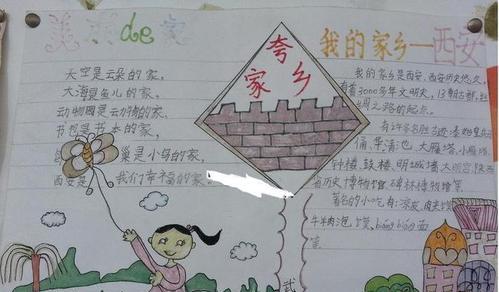 美丽de家
天空是云朵的家,
大海是鱼儿的家,
动物园是动物的家,
书包是书本的家,
巢是小鸟的家,
西安是我们幸福的家。
夸家乡
我的家乡—西安
我的家乡是西安,西安历史悠久,
有着3000多年文明史,13朝古都,丝
绸之路的起点。
有许多名胜古迹:秦始皇兵
马俑、华清池、大雁塔、小雁塔、
钟楼、鼓楼、明城墙、大明宫、陕西
省历史博物馆、碑林博物馆等。
著名的小吃有:凉皮、肉夹馍、
牛羊肉泡馍、biángbiáng面
等
武